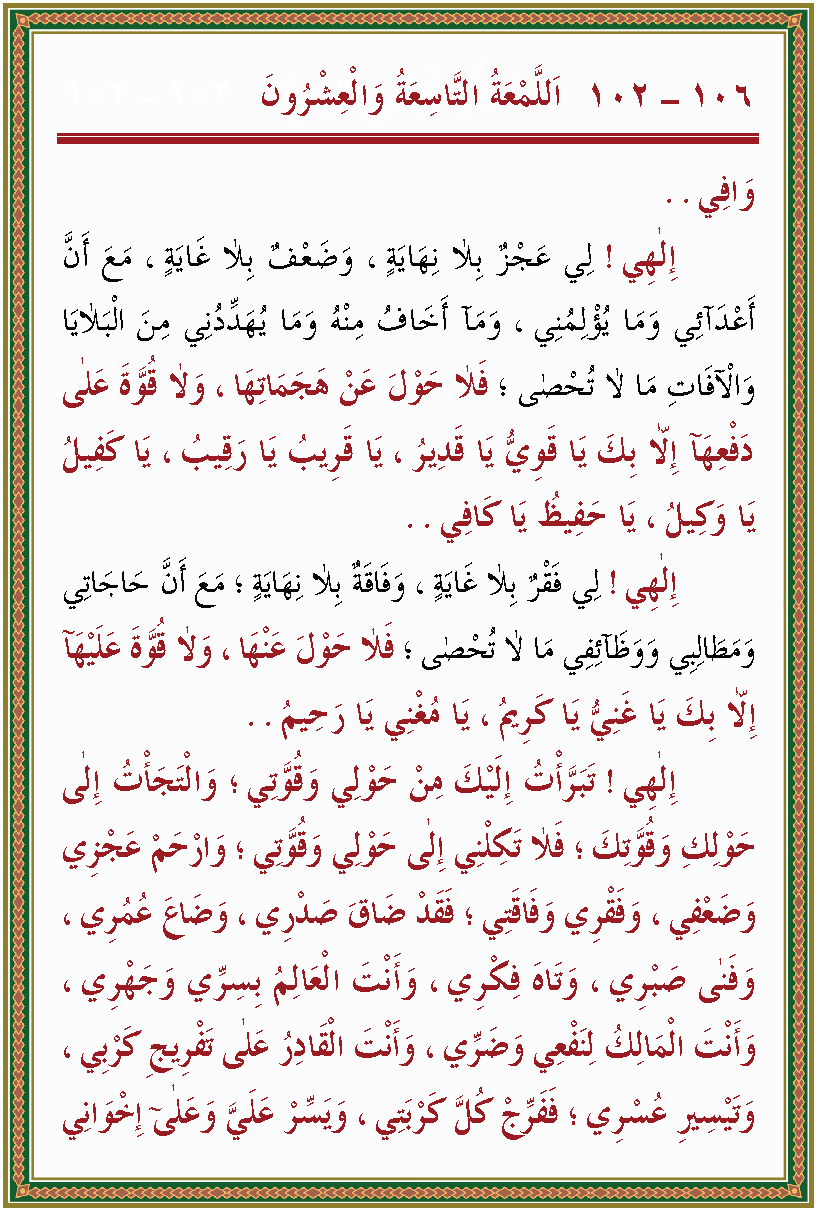 ١٠٦ – ١٠٢ اَللَّمْعَةُ التَّاسِعَةُ وَالْعِشْرُونَ
وَافِي . .
إِلٰهِي ! لِي عَجْزٌ بِلاٰ نِهَايَةٍ ، وَضَعْفٌ بِلاٰ غَايَةٍ ، مَعَ أَنَّ
أَعْدَآئِي وَمَا يُؤْلِمُنِي ، وَمَآ أَخَافُ مِنْهُ وَمَا يُهَدِّدُنِي مِنَ الْبَلاٰيَا
وَالْآفَاتِ مَا لاٰ تُحْصٰى ؛ فَلاٰ حَوْلَ عَنْ هَجَمَاتِهَا ، وَلاٰ قُوَّةَ عَلٰى
دَفْعِهَآ إِلّاٰ بِكَ يَا قَوِيُّ يَا قَدِيرُ ، يَا قَرِيبُ يَا رَقِيبُ ، يَا كَفِيلُ
يَا وَكِيلُ ، يَا حَفِيظُ يَا كَافِي . .
إِلٰهِي ! لِي فَقْرٌ بِلاٰ غَايَةٍ ، وَفَاقَةٌ بِلاٰ نِهَايَةٍ ؛ مَعَ أَنَّ حَاجَاتِي
وَمَطَالِبِي وَوَظَآئِفِي مَا لاٰ تُحْصٰى ؛ فَلاٰ حَوْلَ عَنْهَا ، وَلاٰ قُوَّةَ عَلَيْهَآ
إِلّاٰ بِكَ يَا غَنِيُّ يَا كَرِيمُ ، يَا مُغْنِي يَا رَحِيمُ . .
إِلٰهِي ! تَبَرَّأْتُ إِلَيْكَ مِنْ حَوْلِي وَقُوَّتِي ؛ وَالْتَجَأْتُ إِلٰى
حَوْلِكَ وَقُوَّتِكَ ؛ فَلاٰ تَكِلْنِي إِلٰى حَوْلِي وَقُوَّتِي ؛ وَارْحَمْ عَجْزِي
وَضَعْفِي ، وَفَقْرِي وَفَاقَتِي ؛ فَقَدْ ضَاقَ صَدْرِي ، وَضَاعَ عُمُرِي ،
وَفَنٰى صَبْرِي ، وَتَاهَ فِكْرِي ، وَأَنْتَ الْعَالِمُ بِسِرِّي وَجَهْرِي ،
وَأَنْتَ الْمَالِكُ لِنَفْعِي وَضَرِّي ، وَأَنْتَ الْقَادِرُ عَلٰى تَفْرِيجِ كَرْبِي ،
وَتَيْسِيرِ عُسْرِي ؛ فَفَرِّجْ كُلَّ كَرْبَتِي ، وَيَسِّرْ عَلَيَّ وَعَلٰىٓ إِخْوَانِي